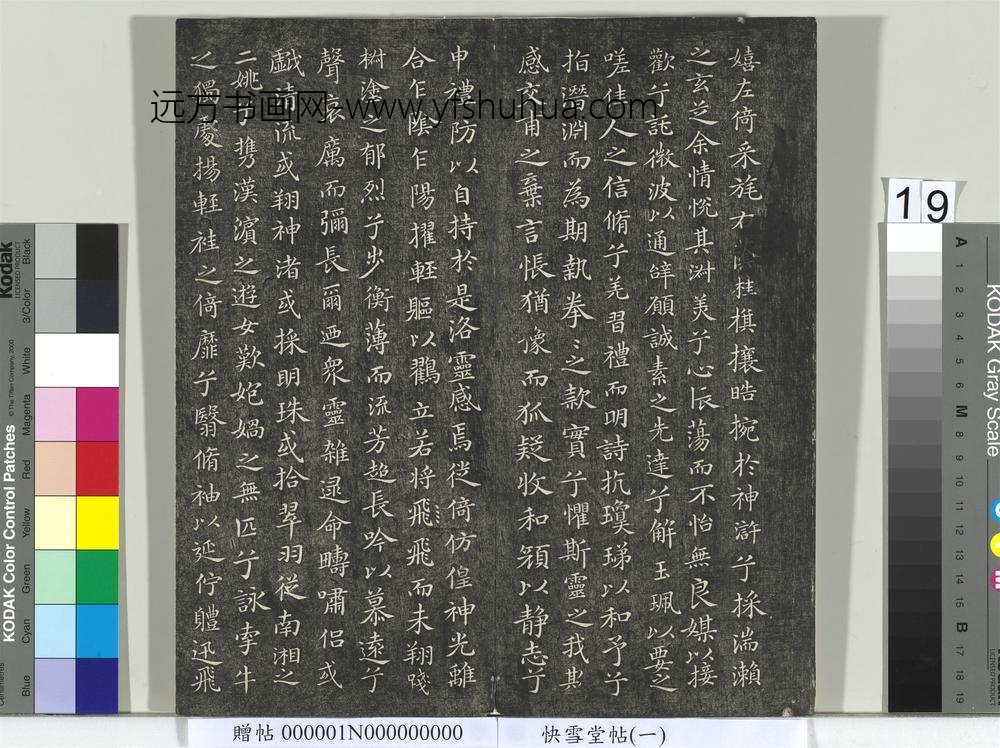 嬉左倚采旄右桂旗攘皓捥於神滸兮採湍瀨
之玄芝余情悅其淑美兮心振蕩而不怡無良媒以接
歡兮託微波以通辭願誠素之先達兮解玉珮以要之
嗟佳人之信脩兮羌習禮而明詩抗瓊珶以和予兮
指潛淵而為期執拳〻之款實兮懼斯靈之我欺
感交甫之棄言悵猶豫而狐疑收和顏以静志兮
申禮防以自持於是洛靈感焉徙倚仿偟神光離
合乍陰乍陽擢輕軀以鸛立若將飛飛而未翔踐
椒塗之郁烈兮步衡薄而流芳超長吟以慕遠兮
聲哀厲而彌長爾迺衆靈雜遝命疇嘯侶或
戲清流或翔神渚或採明珠或拾翠羽從南湘之
二姚兮攜漢濱之遊女歎匏媧之無匹兮詠牽牛
之獨處揚輕袿之倚靡兮翳脩袖以延佇體迅飛
远方书画网 www.yfshuhua.com
贈帖 000001N000000000
快雪堂帖(一)
19
Kodak
LICENSED PRODUCT
KODAK Color Control Patches
© The Tiffen Company, 2000
Centimetres
Blue
Cyan
Green
Yellow
Red
Magenta
White
3/Color
Black
KODAK Gray Scale
A 1 2 3 4 5 6 M 8 9 10 11 12 13 14 15 B 17 18 19